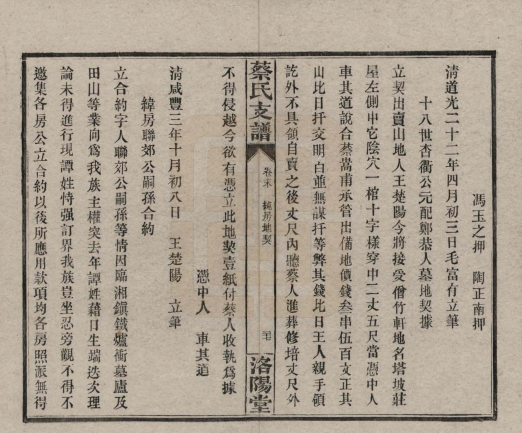 馮玉之押　陶正南押
清道光二十二年四月初三日毛富有立筆
十八世杏衢公元配鄭恭人墓地契據
立契出賣山地人王楚陽今將接受僧竹軒地名塔坡莊
屋左側申它陰穴一棺十字樣穿申二丈五尺當憑中人
車其道說合蔡嵩甫承管出備地價錢叁串伍百文正其
山比日扦交明白並無謀扦等弊其錢比日王人親手領
訖外不具領自賣之後丈尺內聽蔡人進葬修培丈尺外
蔡氏支譜
卷末　純房地契
廿七
洛陽堂
不得侵越今欲有憑立此地契壹紙付蔡人收執爲據
憑中人　車其道
清咸豐三年十月初八日　王楚陽　立筆
緯房聯郊公嗣孫合約
立合約字人聯郊公嗣孫等情因臨湘鎮鐵爐衝墓廬及
田山等業向爲我族主權突去年譚姓藉日生端迭次理
論未得進行現譚姓恃强訂界我族豈坐忍旁觀不得不
邀集各房公立合約以後所應用款項均各房照派無得